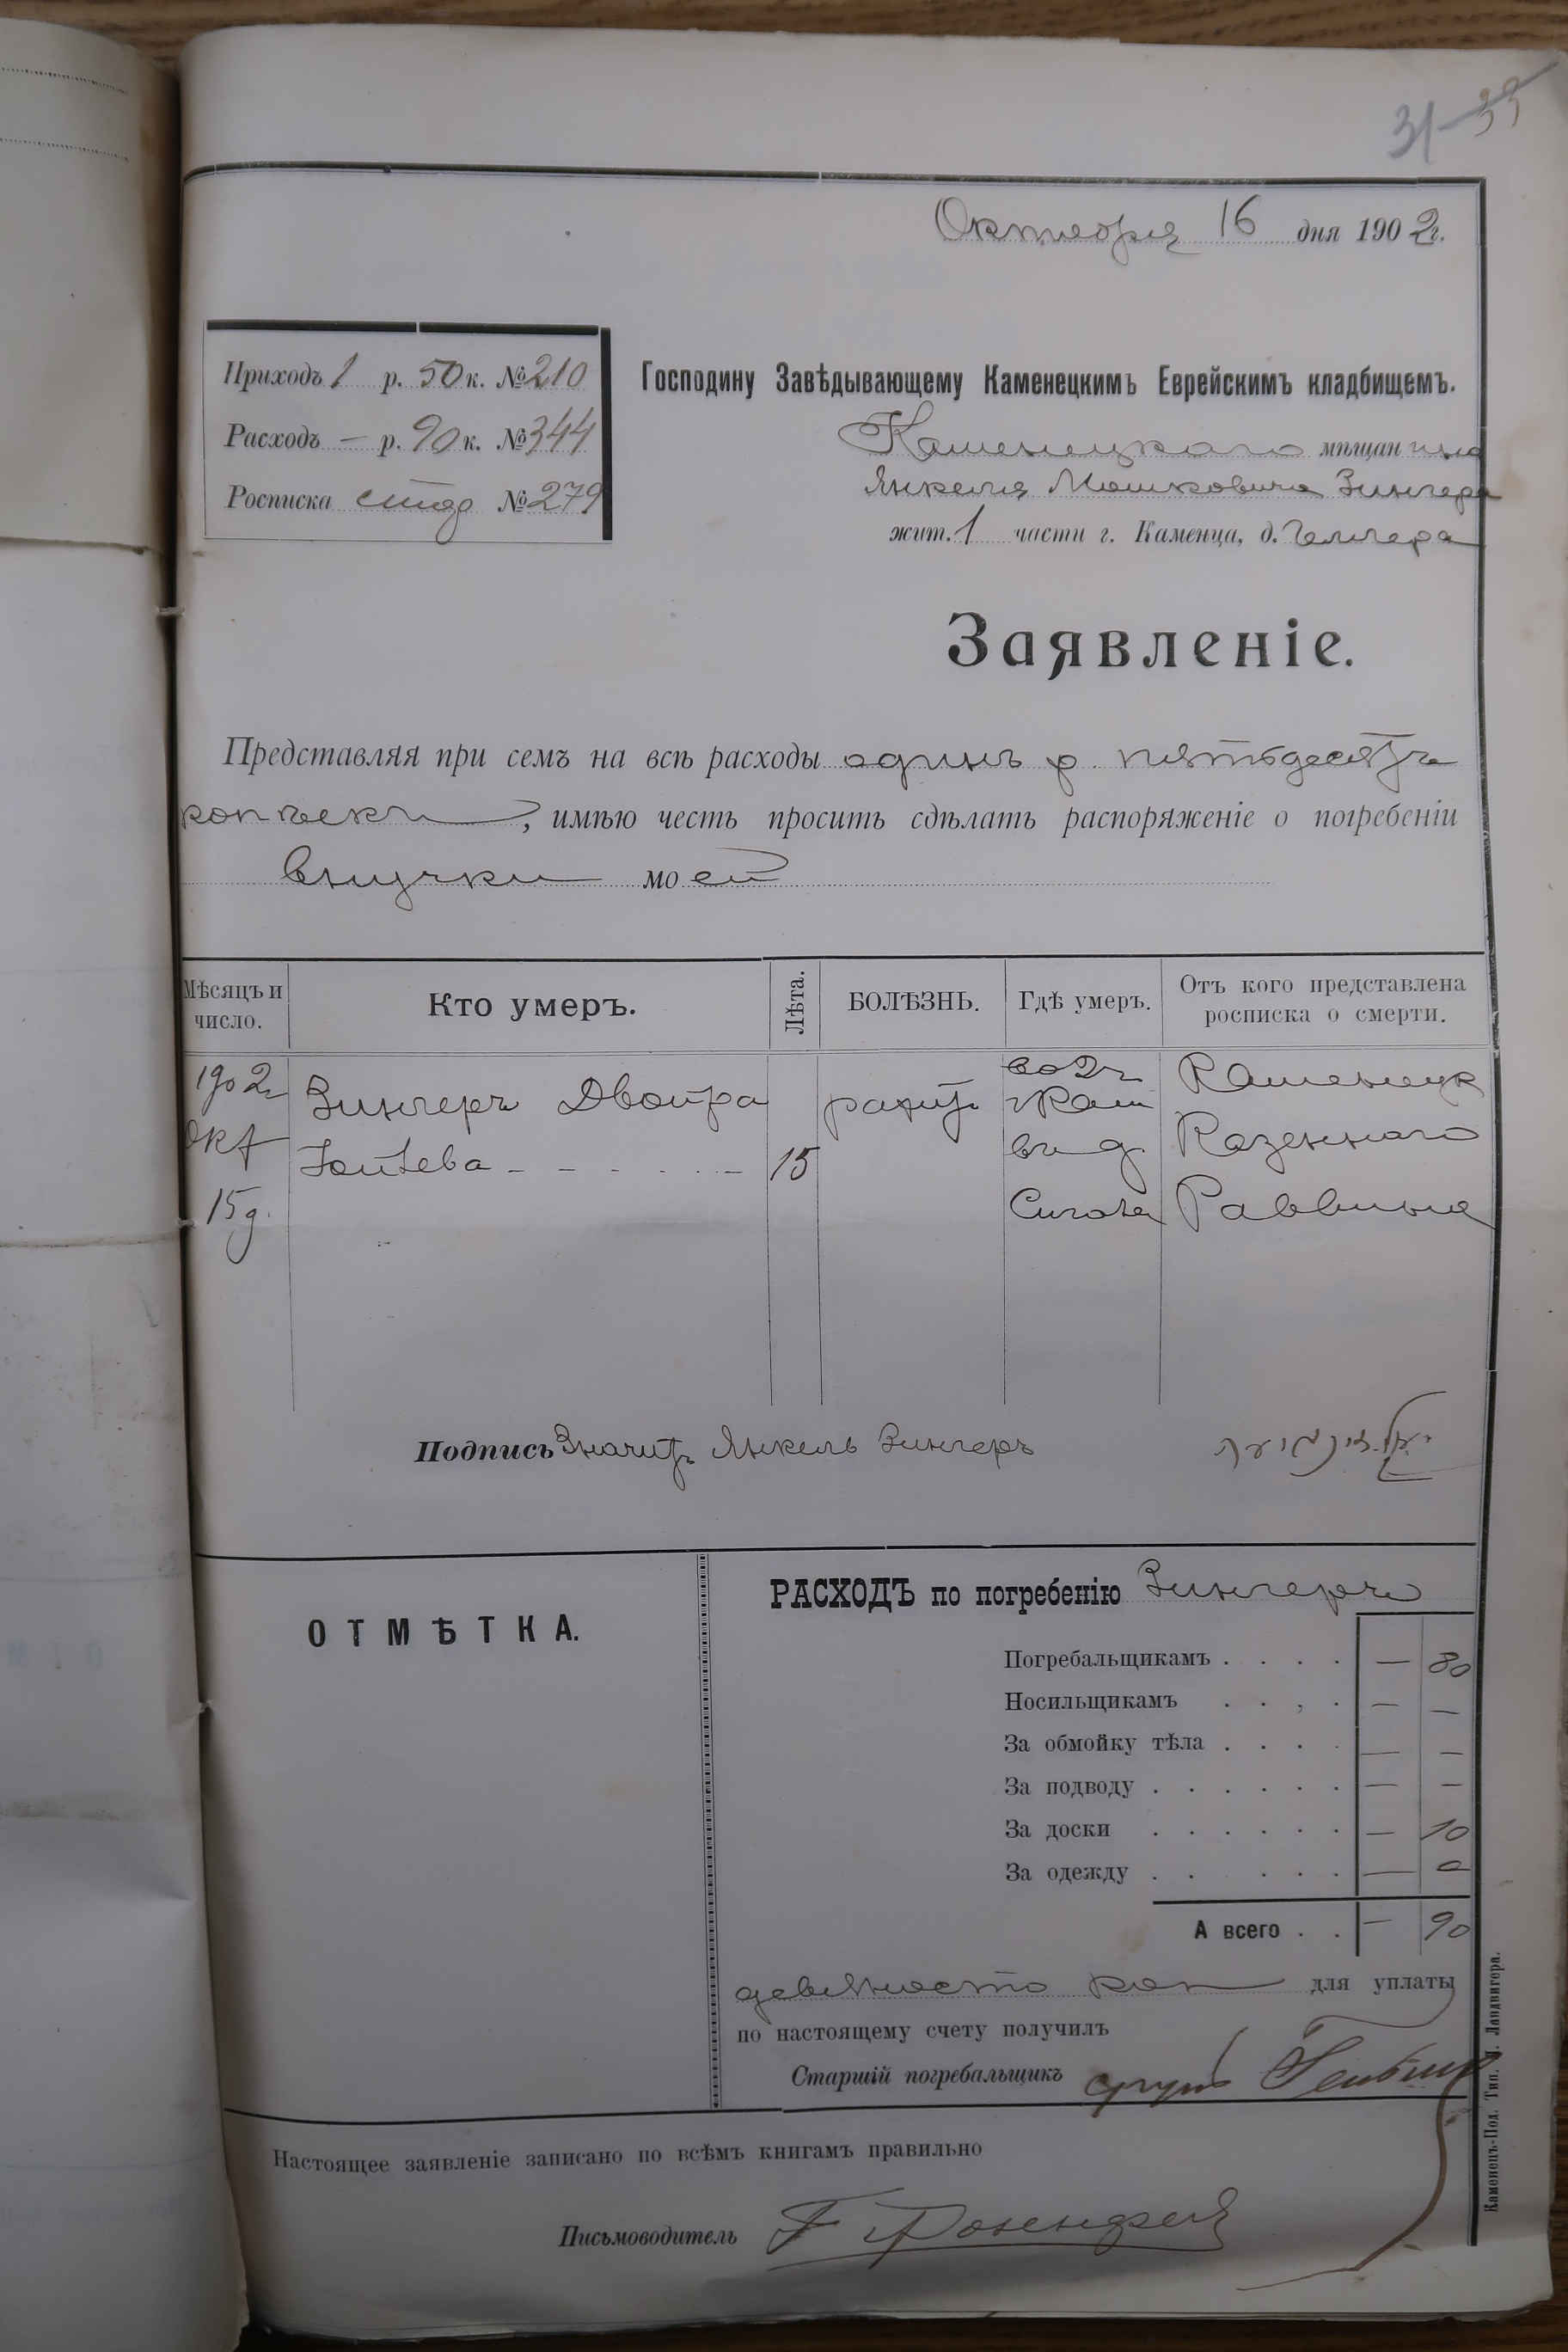 31 33
Октября 16 дня 1902 г.
Приходъ 1 р. 50 к. № 210
Расходъ — р. 90 к. № 344
Росписка № 279
Господину Завѣдывающему Каменецкимъ Еврейскимъ кладбищемъ.
Каменецкаго мѣщанина
Янкеля Мошковича Зингера
жит. 1 части г. Каменца, д.
Заявленіе.
Представляя при семъ на всѣ расходы одинъ р. пятьдесятъ
копѣекъ, имѣю честь просить сдѣлать распоряженіе о погребеніи
внучки моей
Мѣсяцъ и число.
Кто умеръ.
Лѣта.
БОЛѢЗНЬ.
Гдѣ умеръ.
Отъ кого представлена росписка о смерти.
1902 Окт 15 д.
Зингеръ Двойра
15
во 2 ч г Кам въ д
Каменецк Казеннаго Раввина
Подпись Значитъ Янкель Зингеръ
ОТМѢТКА.
РАСХОДЪ по погребенію Зингеръ
Погребальщикамъ . . . . — 80
Носильщикамъ . . , . — —
За обмойку тѣла . . . . — —
За подводу . . . . . . — —
За доски . . . . . . — 10
За одежду . . . . . —
А всего . . — 90
девяносто коп для уплаты
по настоящему счету получилъ
Старшій погребальщикъ
Настоящее заявленіе записано по всѣмъ книгамъ правильно
Письмоводитель
Каменецъ-Под. Тип. Л. Ландвигера.